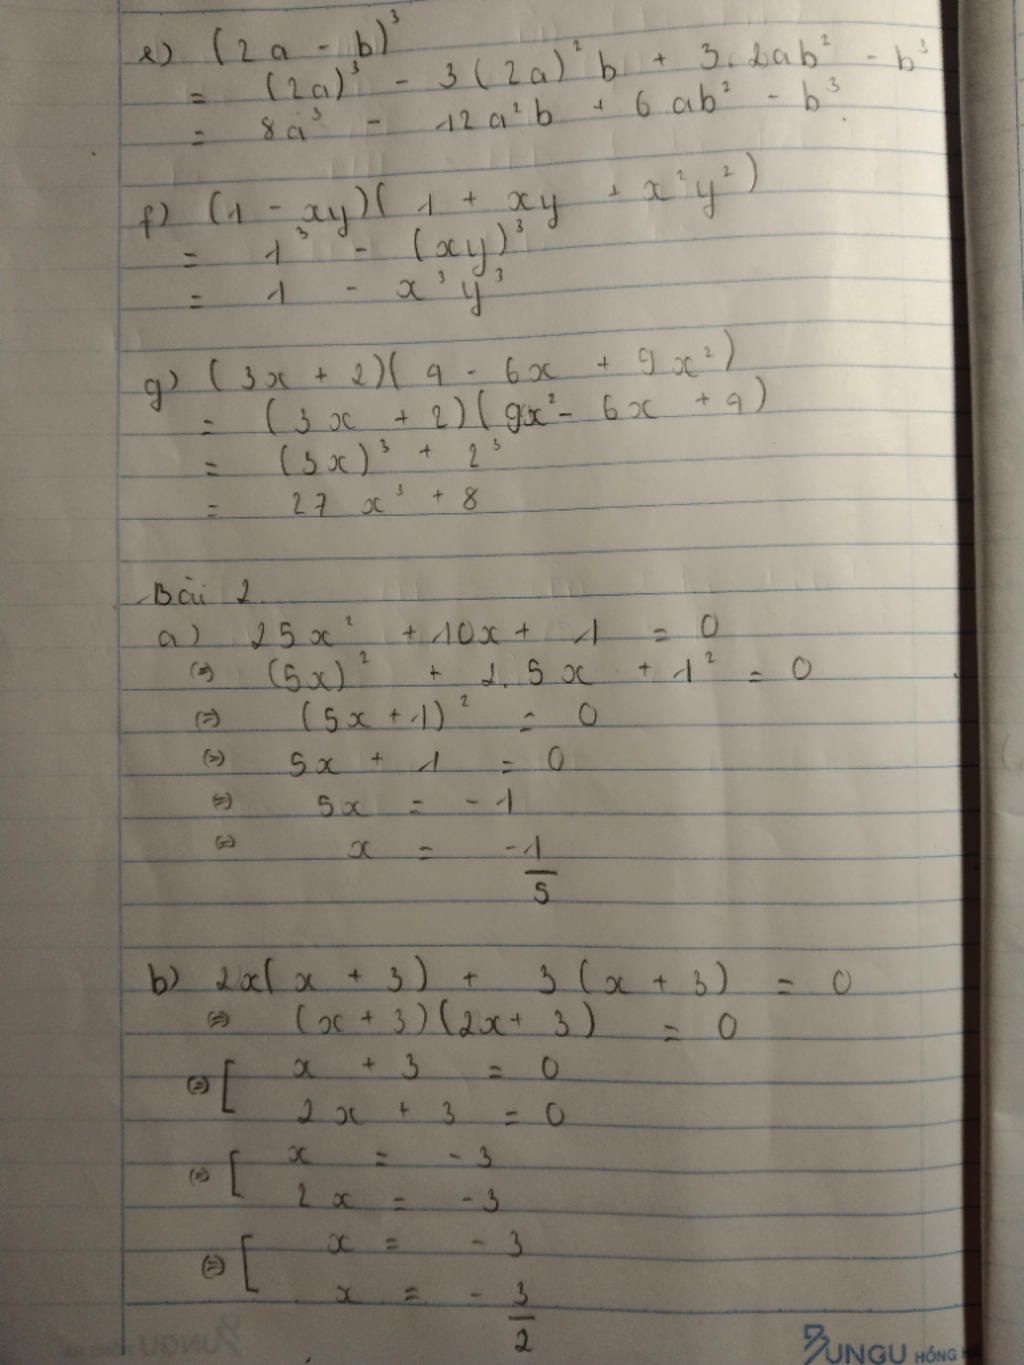 e) (2a - b)³
= (2a)³ - 3(2a)²b + 3.2ab² - b³
= 8a³ - 12a²b + 6ab² - b³
f) (1 - xy)(1 + xy + x²y²)
= 1³ - (xy)³
= 1 - x³y³
g) (3x + 2)(4 - 6x + 9x²)
= (3x + 2)(9x² - 6x + 4)
= (3x)³ + 2³
= 27x³ + 8
Bài 2.
a) 25x² + 10x + 1 = 0
(=) (5x)² + 2.5x + 1² = 0
(=) (5x + 1)² = 0
(=) 5x + 1 = 0
(=) 5x = -1
(=) x = -1/5
b) 2x(x + 3) + 3(x + 3) = 0
(=) (x + 3)(2x + 3) = 0
(=) [ x + 3 = 0
2x + 3 = 0
(=) [ x = -3
2x = -3
(=) [ x = -3
x = -3/2
BUNGU HỒNG